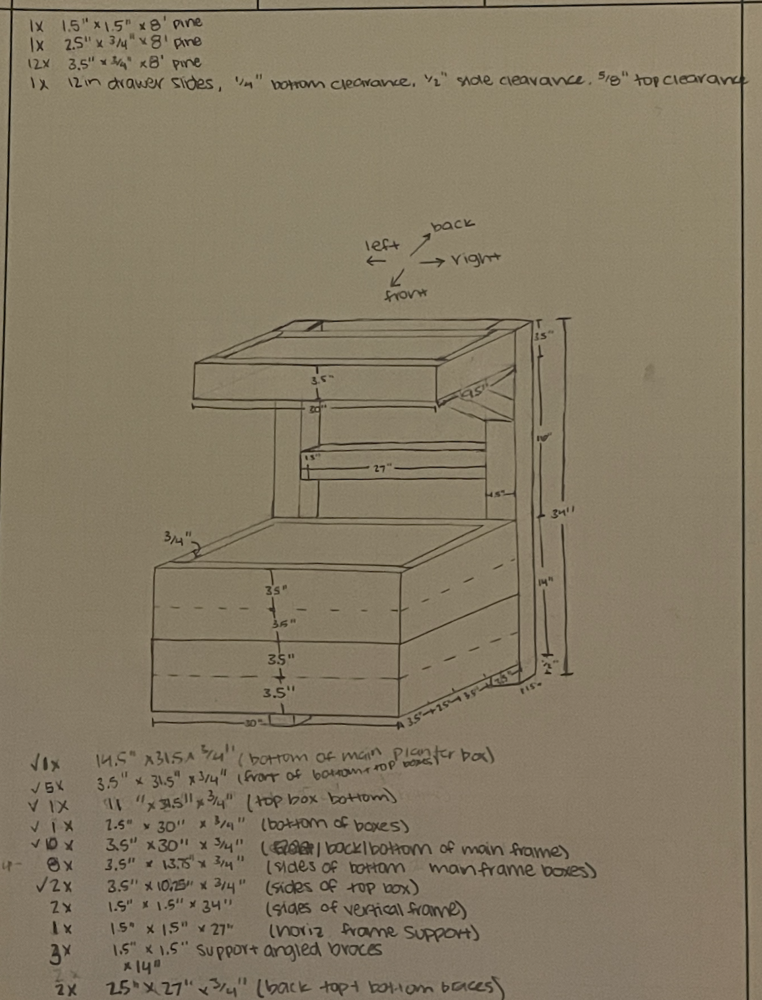 1x 1.5" x 1.5" x 8' pine
1x 2.5" x 3/4" x 8' pine
12x 3.5" x 3/4" x 8' pine
1x 12in drawer slides, 1/4" bottom clearance, 1/2" side clearance, 5/8" top clearance
back
left
right
front
3.5"
3.5"
30"
9.5"
1.5"
27"
1.5"
34"
3/4"
3.5"
3.5"
14"
3.5"
3.5"
2"
30"
3.5"
1.5"
√1x 14.5" x 31.5 x 3/4" (bottom of main planter box)
√5x 3.5" x 31.5" x 3/4" (front of bottom + top boxes)
√1x 11" x 31.5" x 3/4" (top box bottom)
√1x 2.5" x 30" x 3/4" (bottom of boxes)
√10x 3.5" x 30" x 3/4" (back/bottom of main frame)
8x 3.5" x 13.75" x 3/4" (sides of bottom mainframe boxes)
√2x 3.5" x 10.25" x 3/4" (sides of top box)
2x 1.5" x 1.5" x 34" (sides of vertical frame)
1x 1.5" x 1.5" x 27" (horiz frame support)
3x 1.5" x 1.5" support angled braces
x 14"
2x 2.5" x 27" x 3/4" (back top + bottom braces)